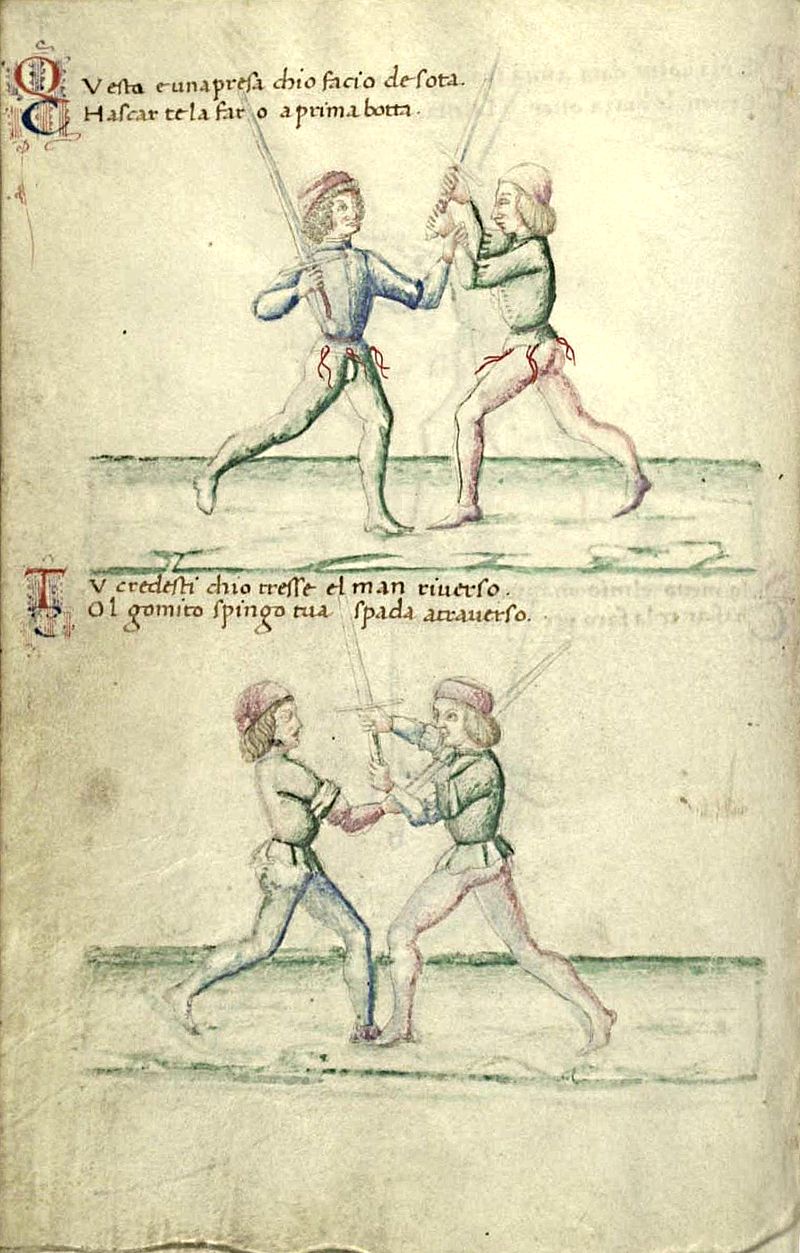 Questa e una presa chio facio de sota.
Chascar te la faro a prima botta.
Tu credesti chio tresse el man riverso.
Ol gomito spingo tua spada atraverso.